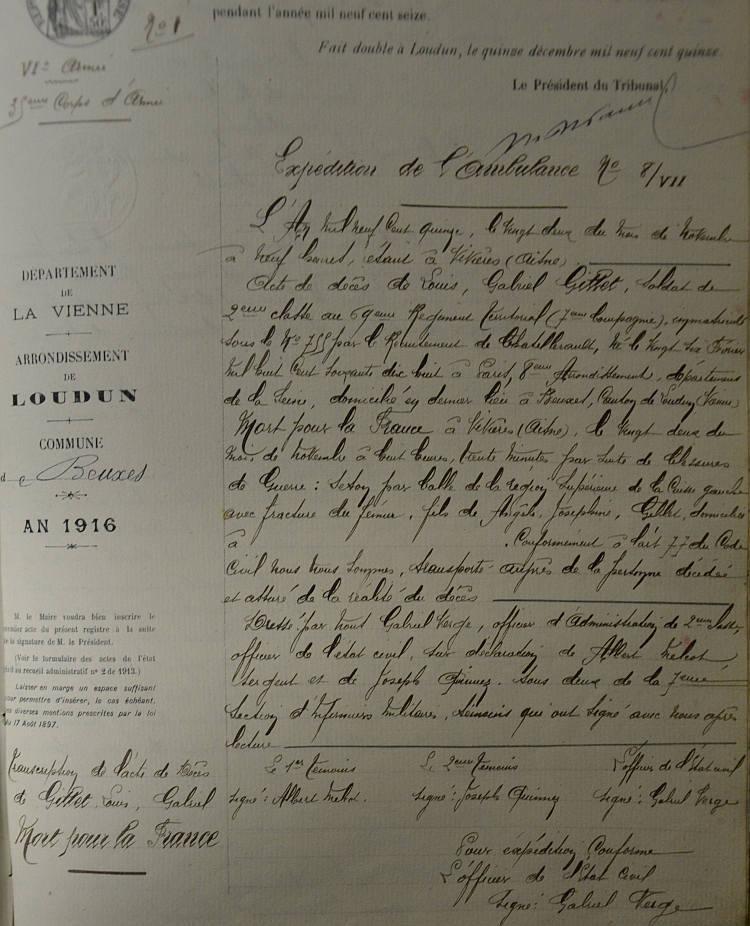 pendant l'année mil neuf cent seize.
Fait double à Loudun, le quinze décembre mil neuf cent quinze.
Le Président du Tribunal,
No 1
VIe Armée
35ème Corps d'Armée
DÉPARTEMENT
DE
LA VIENNE
ARRONDISSEMENT
DE
LOUDUN
COMMUNE
de Beuxes
AN 1916
M. le Maire voudra bien inscrire le
premier acte du présent registre à la suite
de la signature de M. le Président.
(Voir le formulaire des actes de l'état
civil au recueil administratif n° 2 de 1913.)
Laisser en marge un espace suffisant
pour permettre d'insérer, le cas échéant,
les diverses mentions prescrites par la loi
du 17 Août 1897.
Transcription de l'acte de Décès
de Gillet Louis, Gabriel
Mort pour la France
Expédition de l'Ambulance No 8/VII
L'An Mil neuf Cent quinze, le Vingt deux du mois de Novembre
à Neuf heures, étant à Vivières (Aisne)
Acte de décès de Louis, Gabriel Gillet, Soldat de
2eme classe au 69eme Régiment Territorial (7eme Compagnie), immatriculé
sous le No 755 par le Recrutement de Chatellerault, Né le Vingt Six Février
Mil huit Cent Soixante dix huit à Paris, 8eme Arrondissement, département
de la Seine, domicilié en dernier lieu à Beuxes, Canton de Loudun (Vienne)
Mort pour la France à Vivières (Aisne), le Vingt deux du
Mois de Novembre à huit heures, trente minutes par suite de blessures
de Guerre: Séton par balle de la région Supérieure de la Cuisse gauche
avec fracture du fémur, fils de Angèle, Joséphine, Gillet, domiciliée
à . Conformément à l'art 77 du Code
Civil nous nous Sommes, transporté auprès de la personne décédée
et assuré de la réalité du décès
Dressé par Nous Gabriel Verge, officier d'Administration de 2eme Classe,
officier de l'état civil, sur déclaration de Albert
Sergent et de Joseph Sous deux de la 7eme
Section d'Infirmiers Militaires, témoins qui ont signé avec Nous après
lecture
Le 1er témoins Le 2eme témoins L'officier de l'état civil
Signé: Albert Signé: Joseph Signé: Gabriel Verge
Pour expédition Conforme
L'officier de l'État Civil
Signé: Gabriel Verge